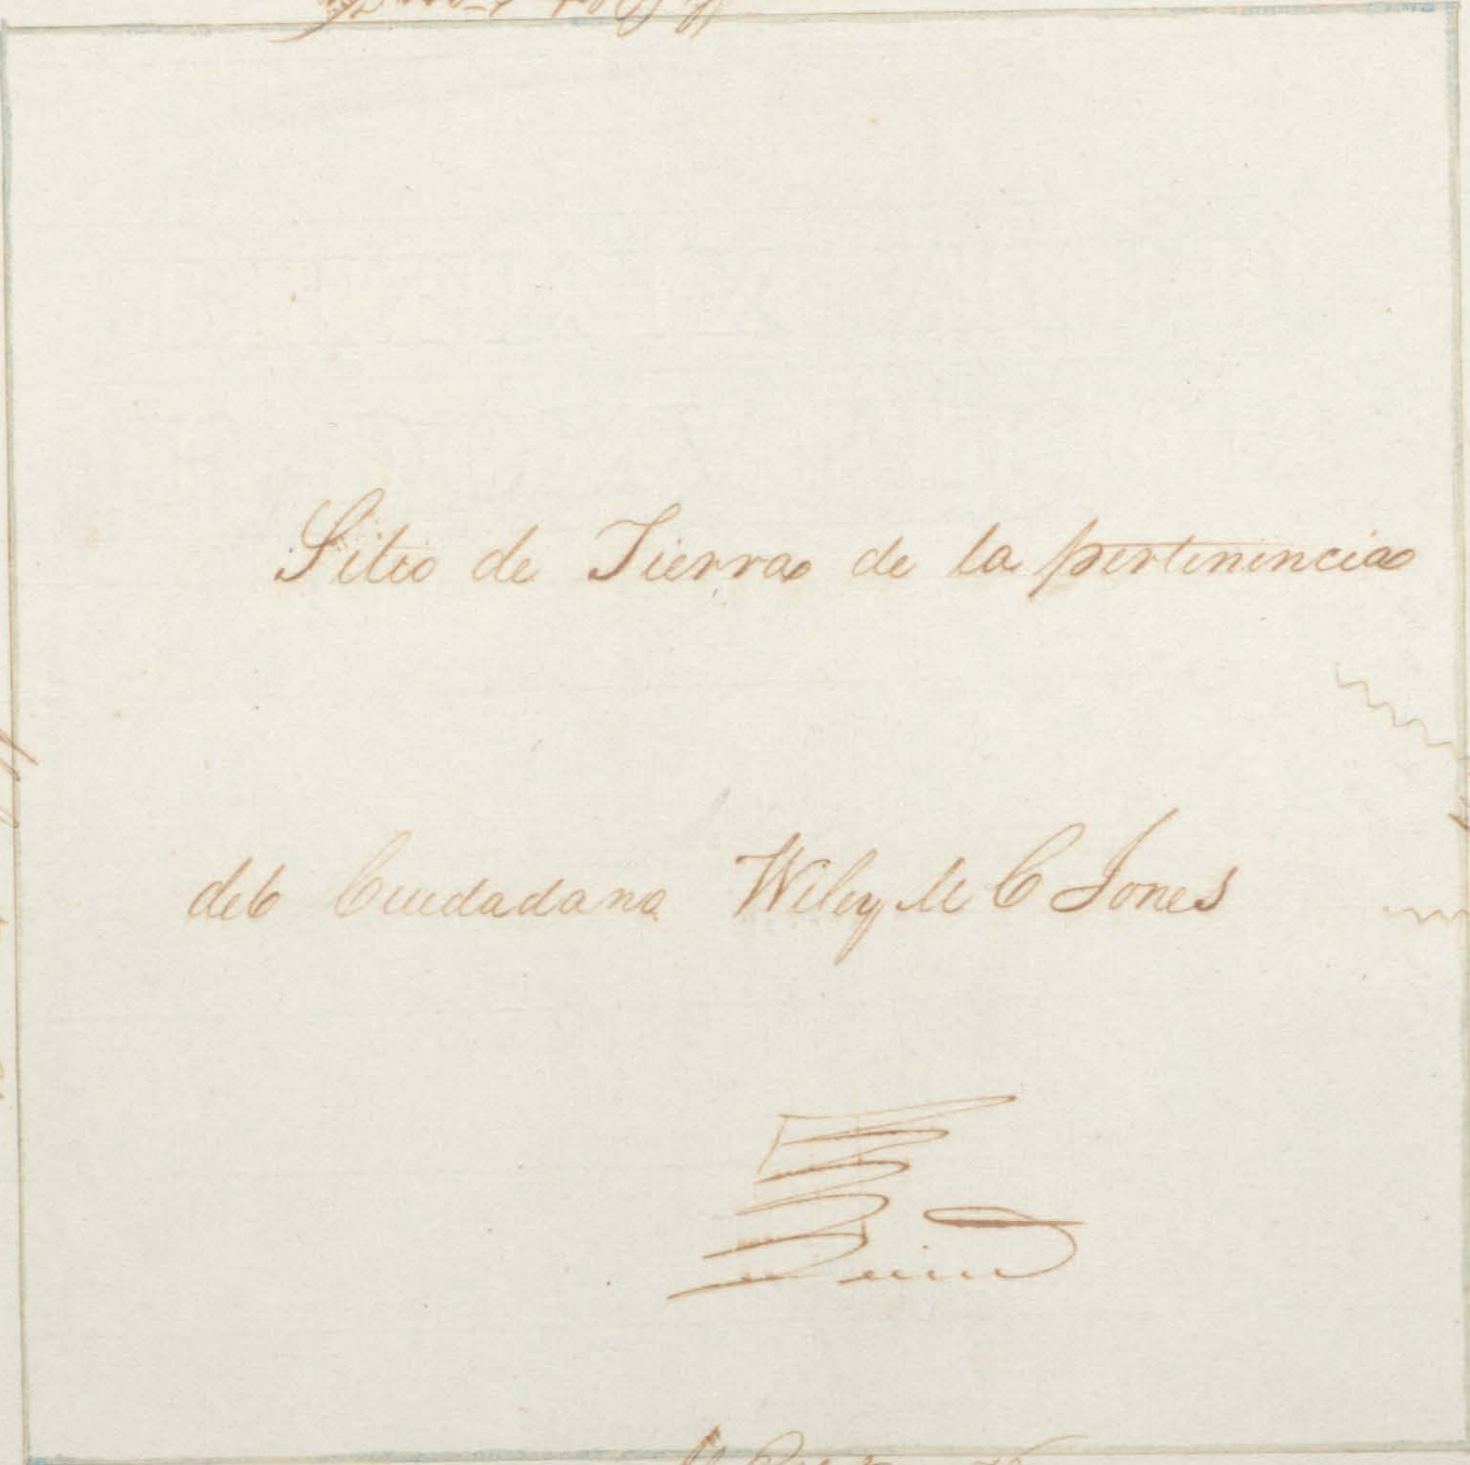 Sitio de Tierra de la pertinencia
del Ciudadano Wiley M C Jones